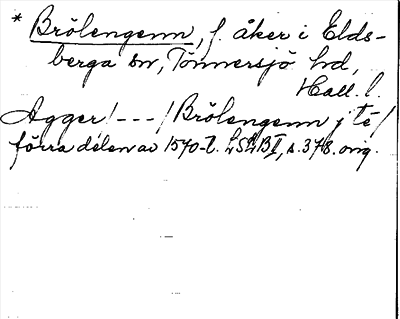 * Brölengenn, f. åker i Elds-
berga sn, Tönnersjö hd,
Hall. l.
Agger/---/Brölengenn j té/
förra delen av 1570-t. LSLBII, s. 378. orig.